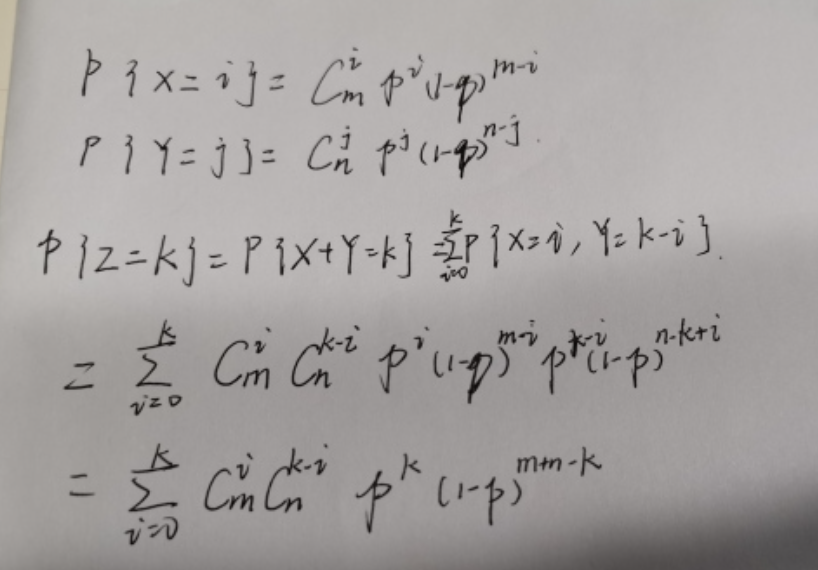 P{X=i}= C_m^i p^i (1-p)^{m-i}
P{Y=j}= C_n^j p^j (1-p)^{n-j}.
P{Z=k}=P{X+Y=k} =\sum_{i=0}^{k} P{X=i, Y=k-i}.
= \sum_{i=0}^{k} C_m^i C_n^{k-i} p^i (1-p)^{m-i} p^{k-i} (1-p)^{n-k+i}
= \sum_{i=0}^{k} C_m^i C_n^{k-i} p^k (1-p)^{m+n-k}